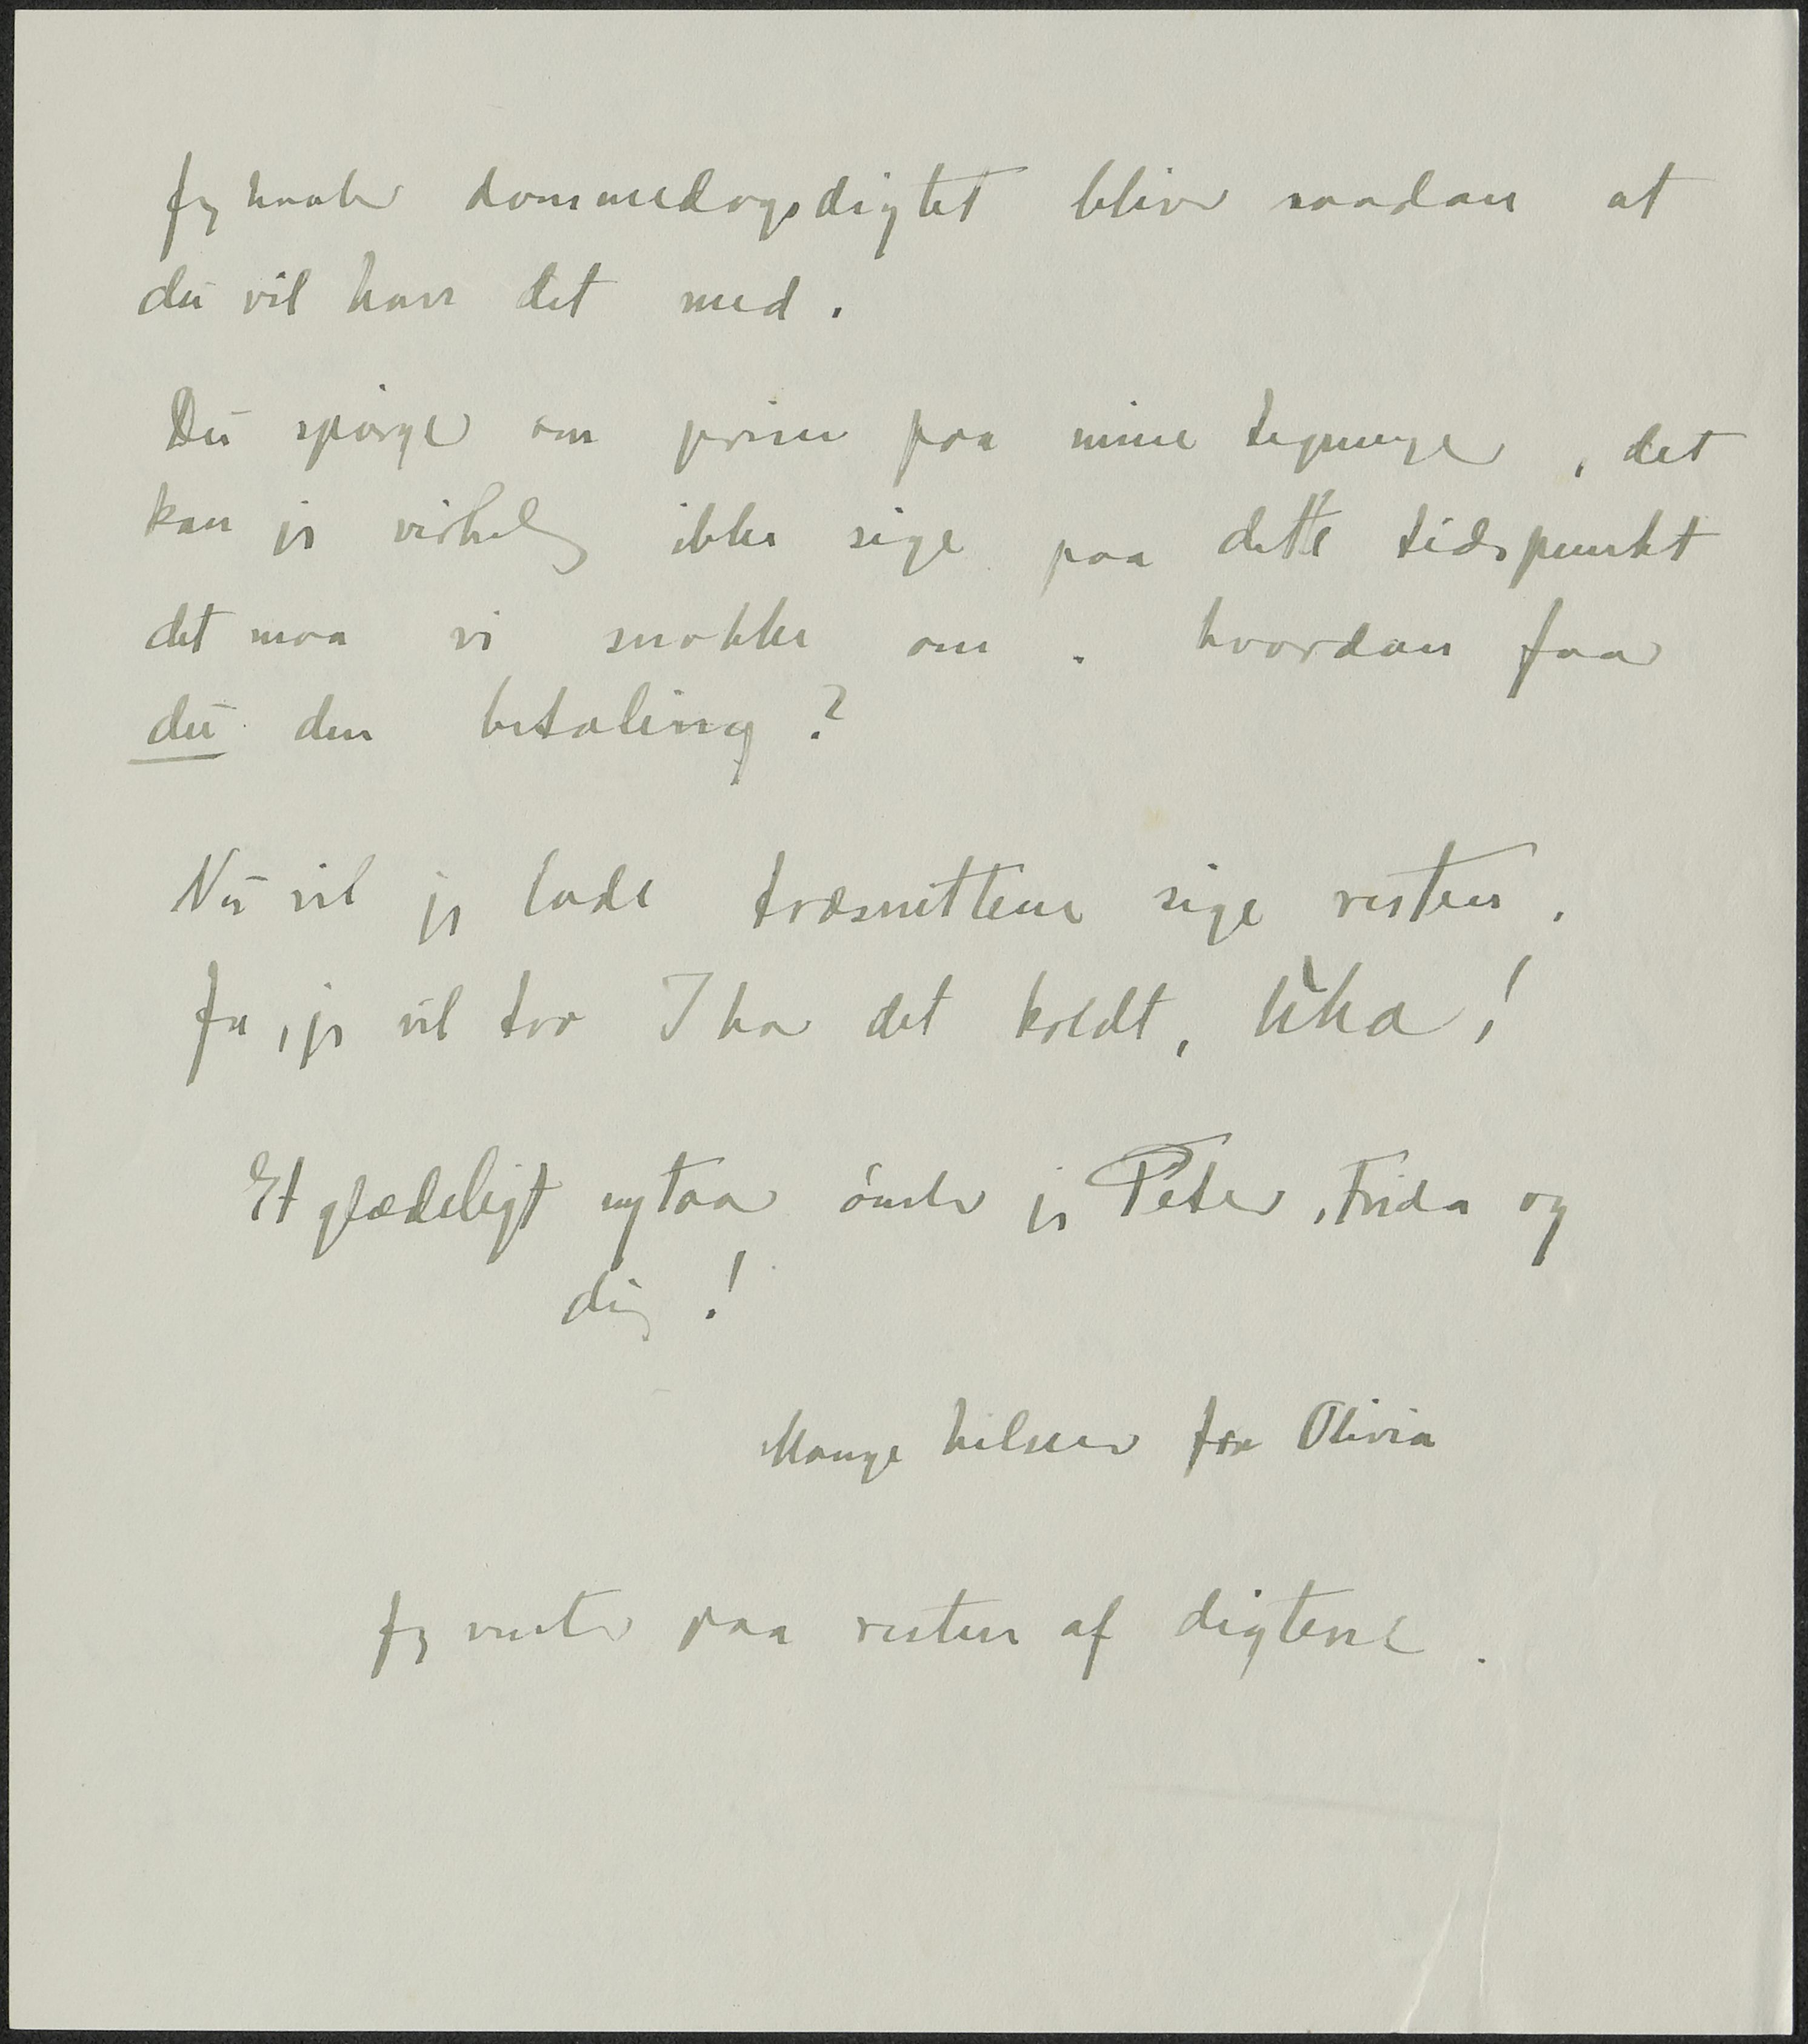 Jeg haaber dommedagsdigtet bliver saadan at
du vil have det med.
Du spörger om prisen paa mine tegninger, det
kan jeg virkelig ikke sige paa dette tidspunkt
det maa vi snakke om. hvordan faar
du din betaling?
Nu vil jeg lade træsnittene sige resten.
Ja, jeg vil tro I har det koldt, uha!
Et glædeligt nytaar önsker jeg Peter, Frida og
dig!
Mange hilsner fra Olivia
Jeg venter paa resten af digtene.